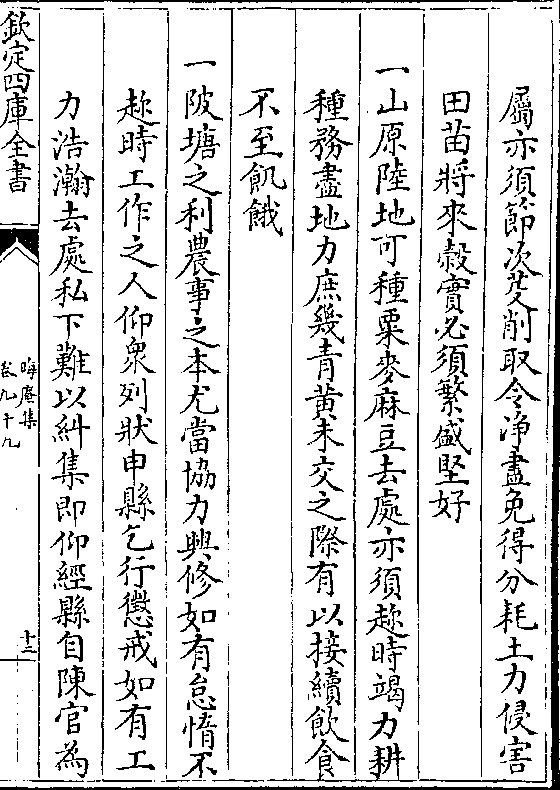 屬亦須節次芟削取令净盡免得分耗土力侵害
田苗將來穀實必須繁盛堅好
一山原陸地可種粟麥麻豆去處亦須趂時竭力耕
種務盡地力庶幾青黄未交之際有以接續飲食
不至飢餓
一陂塘之利農事之本尤當協力興修如有怠惰不
趂時工作之人仰衆列狀申縣乞行懲戒如有工
力浩瀚去處私下難以糾集即仰經縣自陳官為
欽定四庫全書
晦庵集
卷九十九
十二